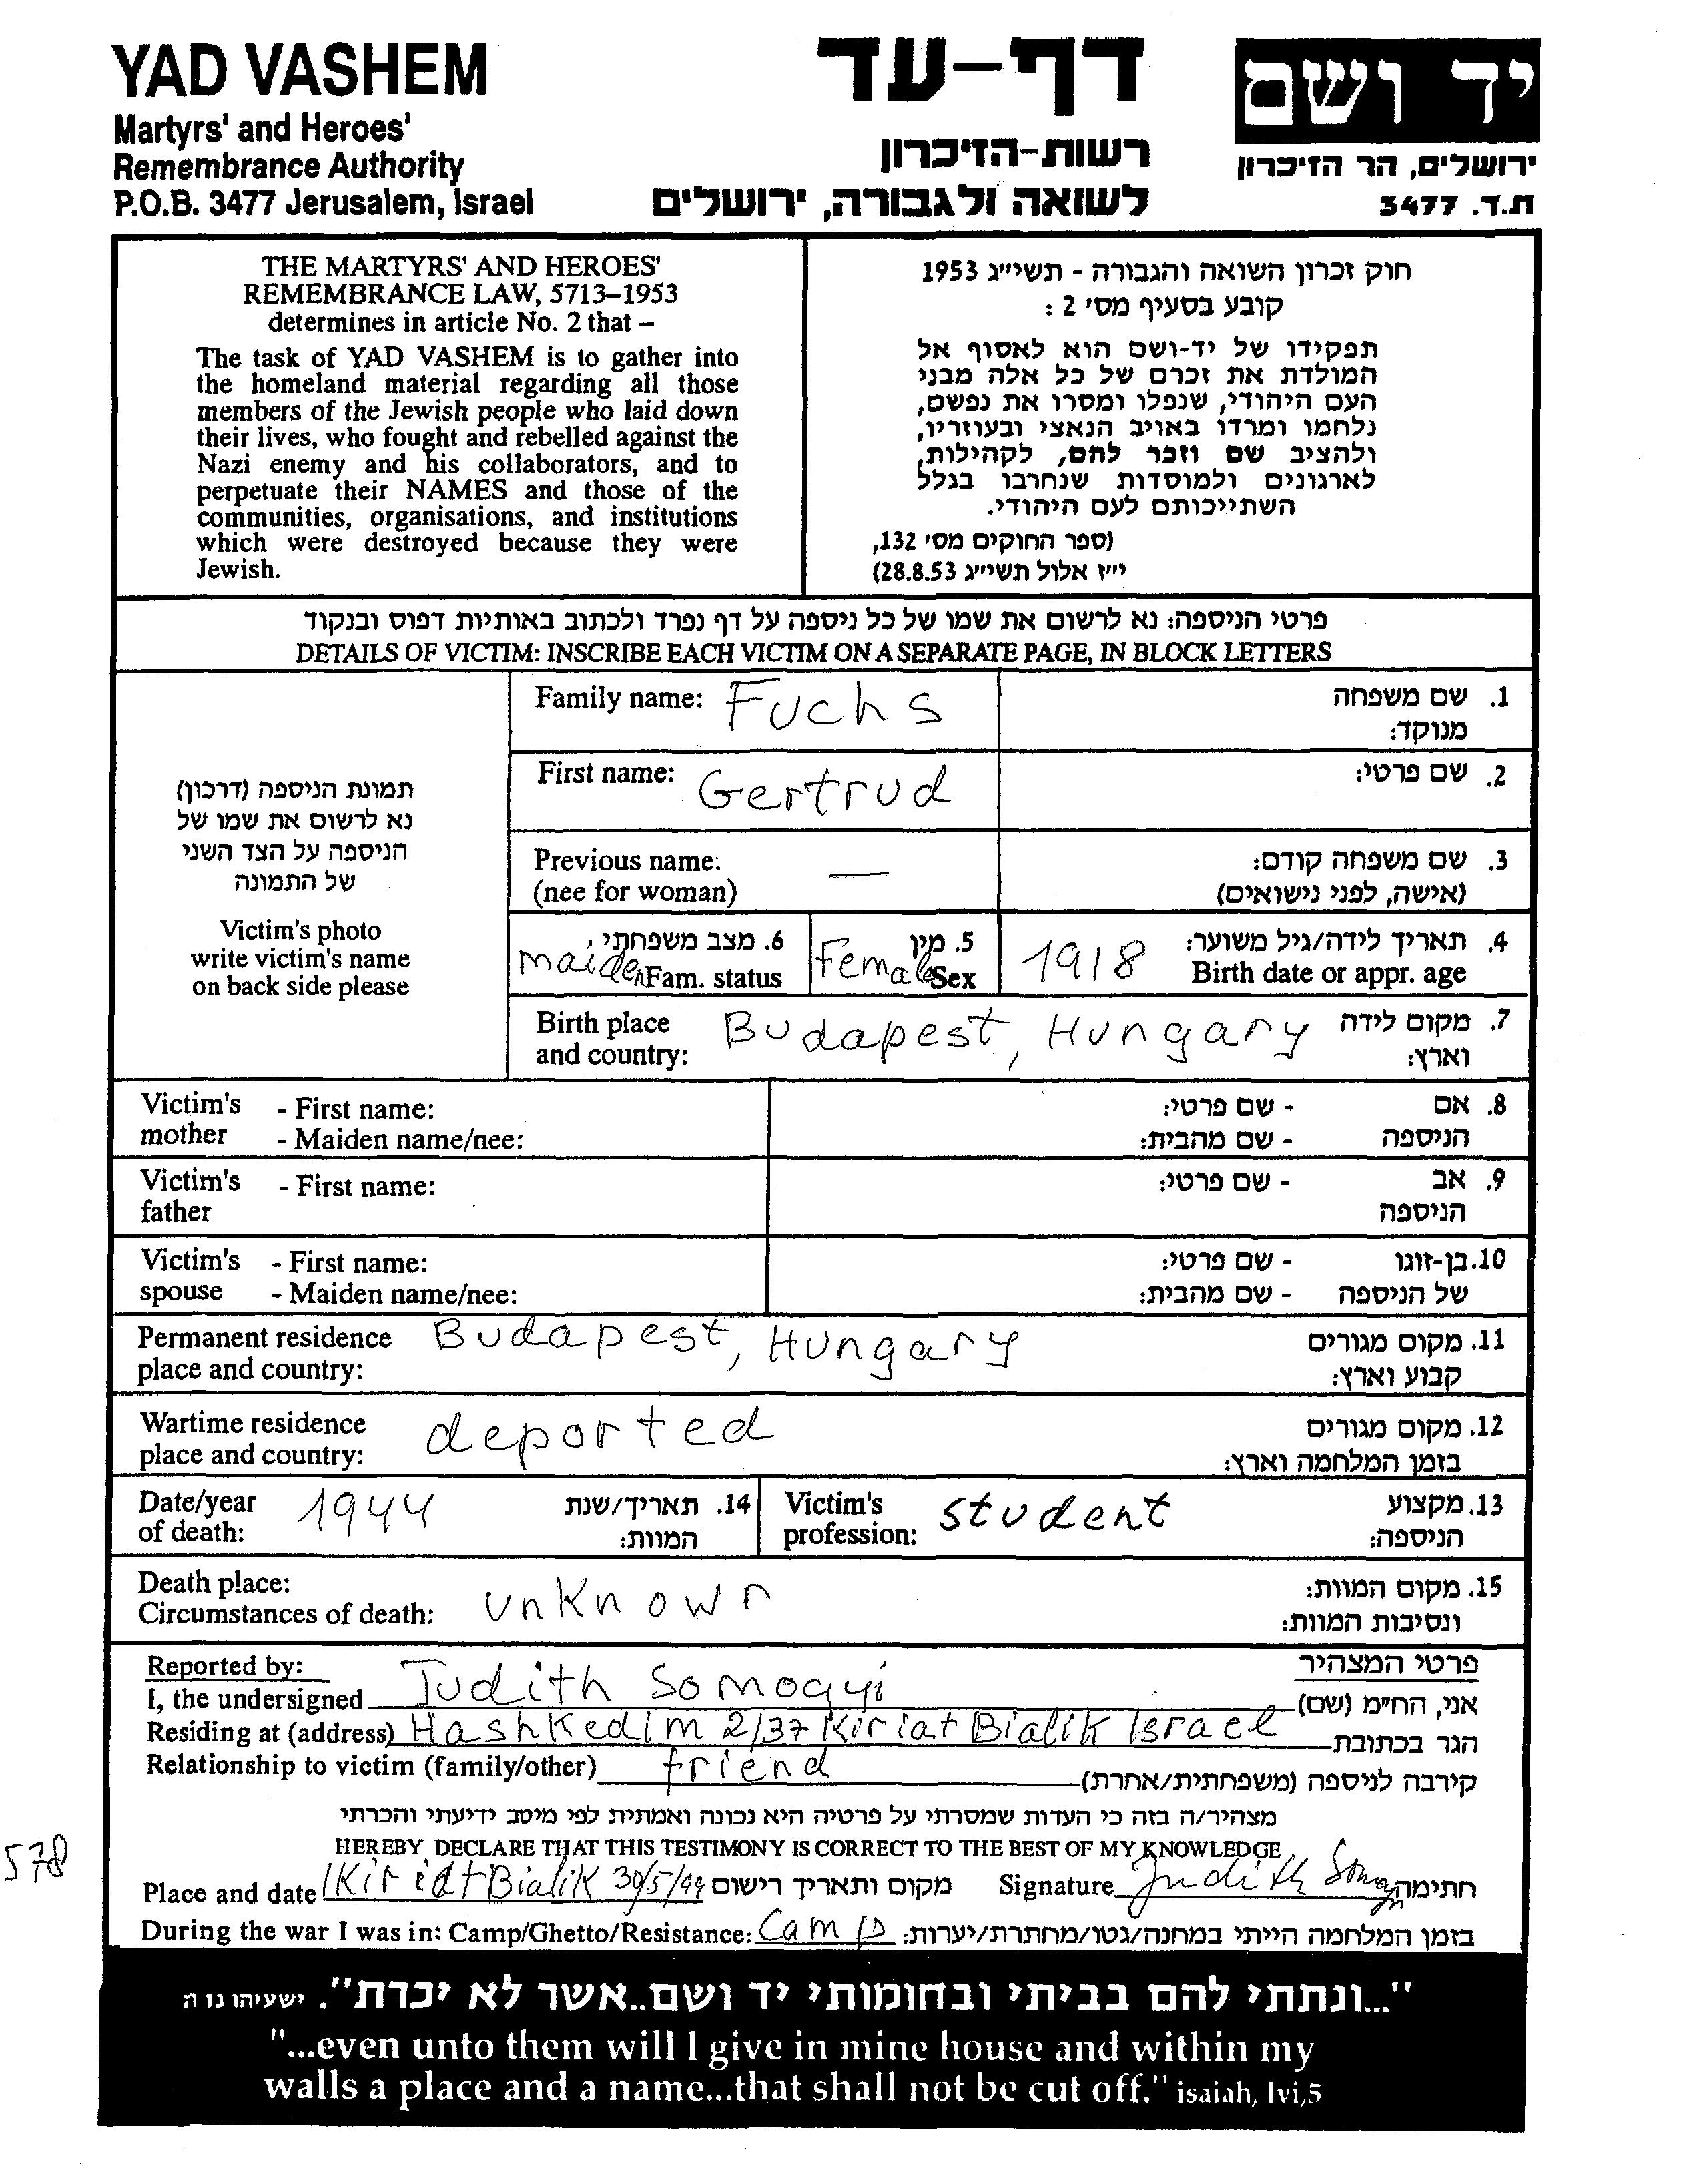 YAD VASHEM
Martyrs' and Heroes'
Remembrance Authority
P.O.B. 3477 Jerusalem, Israel
דף-עד
רשות-הזיכרון
לשואה ולגבורה, ירושלים
יד ושם
ירושלים, הר הזיכרון
ת.ד. 3477
THE MARTYRS' AND HEROES'
REMEMBRANCE LAW, 5713–1953
determines in article No. 2 that –
The task of YAD VASHEM is to gather into
the homeland material regarding all those
members of the Jewish people who laid down
their lives, who fought and rebelled against the
Nazi enemy and his collaborators, and to
perpetuate their NAMES and those of the
communities, organisations, and institutions
which were destroyed because they were
Jewish.
חוק זכרון השואה והגבורה - תשי״ג 1953
קובע בסעיף מס׳ 2 :
תפקידו של יד-ושם הוא לאסוף אל
המולדת את זכרם של כל אלה מבני
העם היהודי, שנפלו ומסרו את נפשם,
נלחמו ומרדו באויב הנאצי ובעוזריו,
ולהציב שם וזכר להם, לקהילות,
לארגונים ולמוסדות שנחרבו בגלל
השתייכותם לעם היהודי.
(ספר החוקים מס׳ 132,
י״ז אלול תשי״ג 28.8.53)
פרטי הניספה: נא לרשום את שמו של כל ניספה על דף נפרד ולכתוב באותיות דפוס ובנקוד
DETAILS OF VICTIM: INSCRIBE EACH VICTIM ON A SEPARATE PAGE, IN BLOCK LETTERS
תמונת הניספה (דרכון)
נא לרשום את שמו של
הניספה על הצד השני
של התמונה
Victim's photo
write victim's name
on back side please
Family name: Fuchs 1. שם משפחה
מנוקד:
First name: Gertrud 2. שם פרטי:
Previous name: — 3. שם משפחה קודם:
(nee for woman) (אישה, לפני נישואים)
6. מצב משפחתי 5. מין 1918 4. תאריך לידה/גיל משוער:
maiden Fam. status Female Sex Birth date or appr. age
Birth place Budapest, Hungary 7. מקום לידה
and country: וארץ:
Victim's - First name: - שם פרטי: 8. אם
mother - Maiden name/nee: - שם מהבית: הניספה
Victim's - First name: - שם פרטי: 9. אב
father הניספה
Victim's - First name: - שם פרטי: 10. בן-זוגו
spouse - Maiden name/nee: - שם מהבית: של הניספה
Permanent residence Budapest, Hungary 11. מקום מגורים
place and country: קבוע וארץ:
Wartime residence deported 12. מקום מגורים
place and country: בזמן המלחמה וארץ:
Date/year 1944 14. תאריך/שנת Victim's student 13. מקצוע
of death: המוות: profession: הניספה:
Death place: 15. מקום המוות:
Circumstances of death: unknown ונסיבות המוות:
Reported by: פרטי המצהיר
I, the undersigned Judith Somogyi אני, הח״מ (שם)
Residing at (address) Hashkedim 2/37 Kiriat Bialik Israel הגר בכתובת
Relationship to victim (family/other) friend קירבה לניספה (משפחתית/אחרת)
מצהיר/ה בזה כי העדות שמסרתי על פרטיה היא נכונה ואמתית לפי מיטב ידיעתי והכרתי
HEREBY DECLARE THAT THIS TESTIMONY IS CORRECT TO THE BEST OF MY KNOWLEDGE
578
Place and date Kiriat Bialik 30/5/99 מקום ותאריך רישום Signature Judith Somogyi חתימה
During the war I was in: Camp/Ghetto/Resistance: Camp בזמן המלחמה הייתי במחנה/גטו/מחתרת/יערות:
"...ונתתי להם בביתי ובחומותי יד ושם..אשר לא יכרת". ישעיהו נו ה
"...even unto them will I give in mine house and within my
walls a place and a name...that shall not be cut off." isaiah, lvi,5